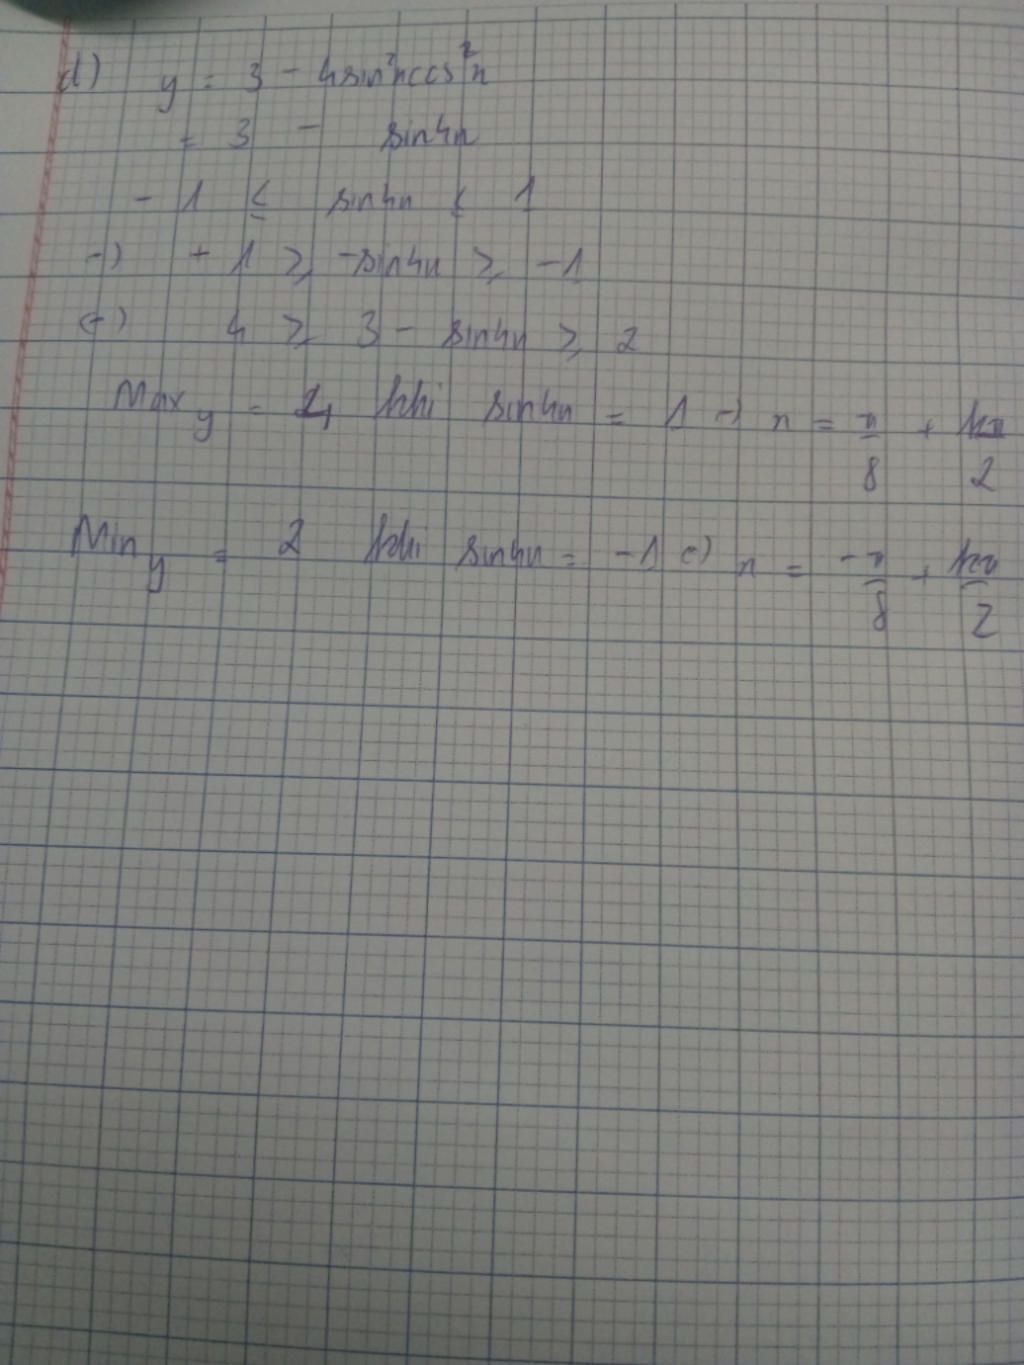 d) y = 3 - 4sin²xcos²x
= 3 - sin4x
- 1 ≤ sin4x ≤ 1
=) + 1 ≥ -sin4x ≥ -1
(=) 4 ≥ 3 - sin4x ≥ 2
Max y = 4 khi sin4x = 1 =) x = π/8 + kπ/2
Min y = 2 khi sin4x = -1 (=) x = -π/8 + kπ/2